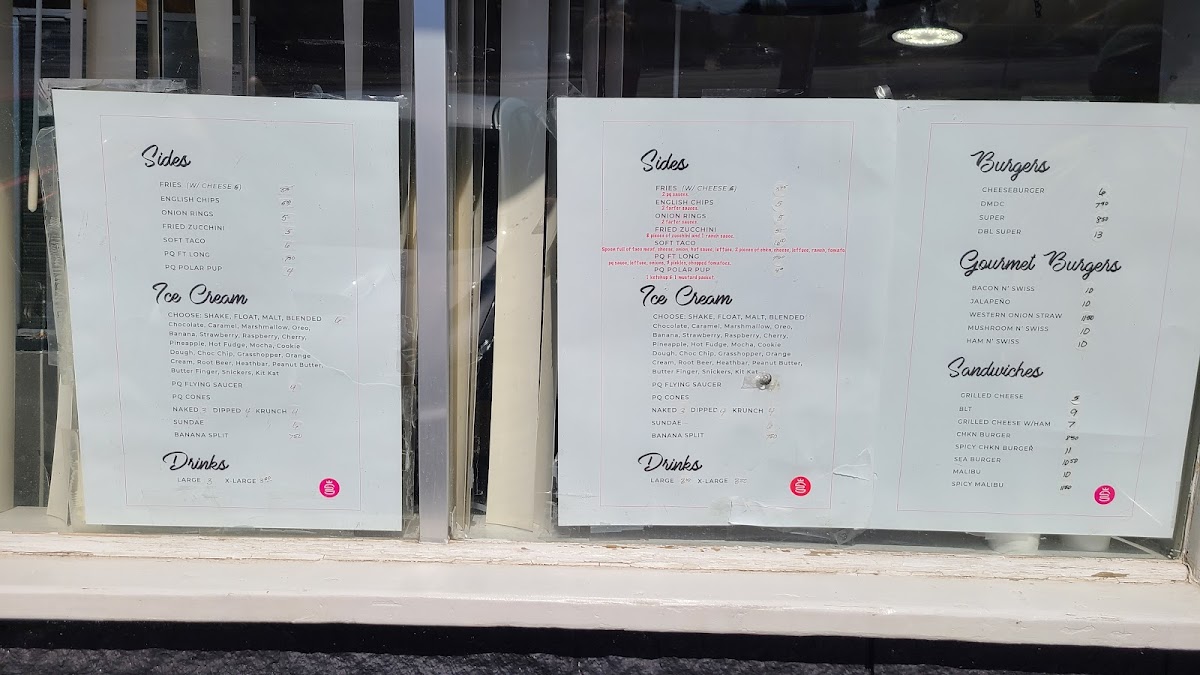 Sides
FRIES (W/ CHEESE 6)
ENGLISH CHIPS
ONION RINGS 5
FRIED ZUCCHINI 5
SOFT TACO 6
PQ FT LONG
PQ POLAR PUP
Ice Cream
CHOOSE: SHAKE, FLOAT, MALT, BLENDED 6
Chocolate, Caramel, Marshmallow, Oreo,
Banana, Strawberry, Raspberry, Cherry,
Pineapple, Hot Fudge, Mocha, Cookie
Dough, Choc Chip, Grasshopper, Orange
Cream, Root Beer, Heathbar, Peanut Butter,
Butter Finger, Snickers, Kit Kat
PQ FLYING SAUCER 4
PQ CONES
NAKED 3 DIPPED 4 KRUNCH 4
SUNDAE 6
BANANA SPLIT 750
Drinks
LARGE 3 X-LARGE 350
Sides
FRIES (W/ CHEESE 6)
2 pq sauces
ENGLISH CHIPS 5
2 tarter sauces
ONION RINGS 5
2 tarter sauces
FRIED ZUCCHINI 5
8 pieces of zucchini and 1 ranch sauce
SOFT TACO
Spoon full of taco meat, cheese, onion, hot sauce, lettuce, 2 pieces of onion, cheese, lettuce, ranch, tomato
PQ FT LONG
pq sauce, lettuce, onions, 4 pickles, chopped tomatoes.
PQ POLAR PUP
1 ketchup & 1 mustard packet
Ice Cream
CHOOSE: SHAKE, FLOAT, MALT, BLENDED
Chocolate, Caramel, Marshmallow, Oreo,
Banana, Strawberry, Raspberry, Cherry,
Pineapple, Hot Fudge, Mocha, Cookie
Dough, Choc Chip, Grasshopper, Orange
Cream, Root Beer, Heathbar, Peanut Butter,
Butter Finger, Snickers, Kit Kat
PQ FLYING SAUCER
PQ CONES
NAKED 3 DIPPED KRUNCH 4
SUNDAE 6
BANANA SPLIT 750
Drinks
LARGE X-LARGE
Burgers
CHEESEBURGER 6
DMDC 750
SUPER 850
DBL SUPER 13
Gourmet Burgers
BACON N' SWISS 10
JALAPEÑO 10
WESTERN ONION STRAW 1150
MUSHROOM N' SWISS 10
HAM N' SWISS 10
Sandwiches
GRILLED CHEESE 5
BLT 9
GRILLED CHEESE W/HAM 7
CHKN BURGER 850
SPICY CHKN BURGER 11
SEA BURGER 1050
MALIBU 10
SPICY MALIBU 1150